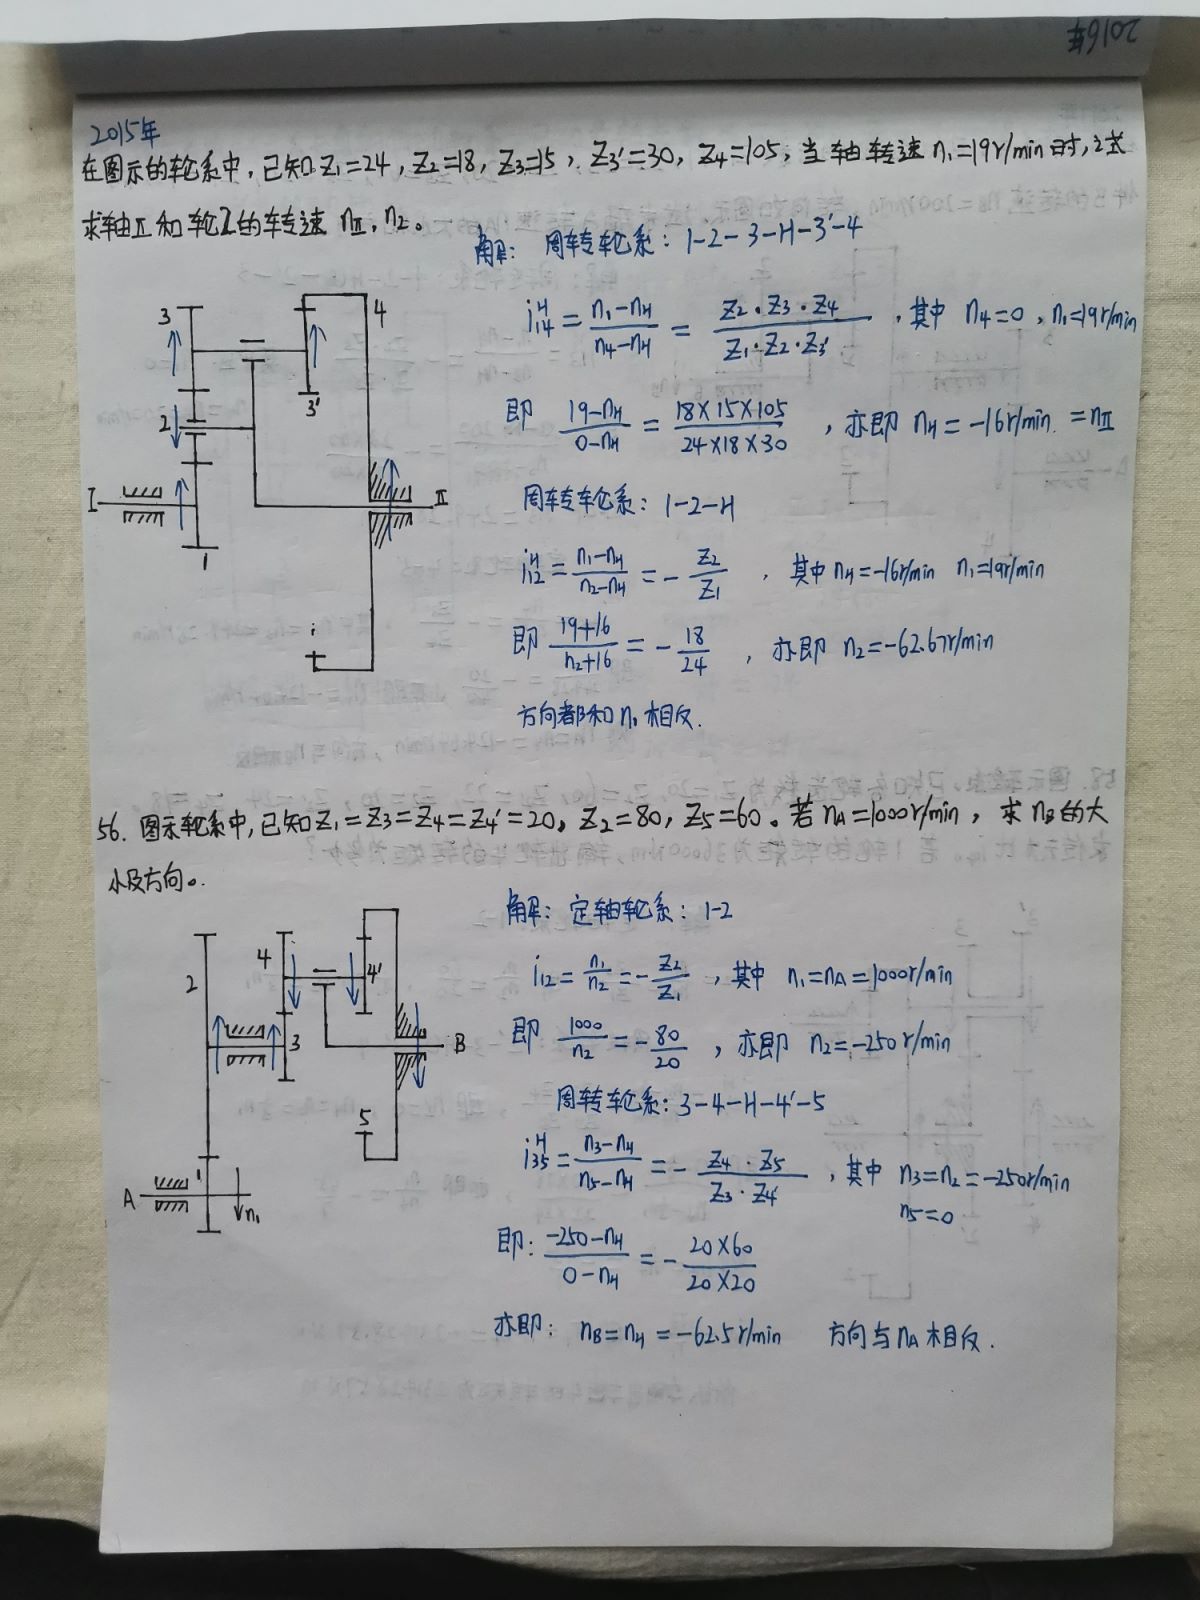 2016年
2015年
在图示的轮系中,已知Z₁=24,Z₂=18,Z₃=15,Z₃'=30,Z₄=105,当轴转速n₁=19r/min时,试
求轴Ⅱ和轮2的车转速nⅡ,n₂。
解: 周转轮系: 1-2-3-H-3'-4
i₁₄ᴴ = (n₁-nH)/(n₄-nH) = (Z₂·Z₃·Z₄)/(Z₁·Z₂·Z₃'),其中 n₄=0,n₁=19r/min
即 (19-nH)/(0-nH) = (18×15×105)/(24×18×30),亦即 nH=-16r/min =nⅡ
周转轮系: 1-2-H
i₁₂ᴴ = (n₁-nH)/(n₂-nH) = -Z₂/Z₁,其中nH=-16r/min n₁=19r/min
即 (19+16)/(n₂+16) = -18/24,亦即 n₂=-62.67r/min
方向都和n₁相反.
3
4
3'
2
Ⅰ
Ⅱ
1
56. 图示轮系中,已知Z₁=Z₃=Z₄=Z₄'=20,Z₂=80,Z₅=60。若nA=1000r/min,求nB的大
小及方向。
解: 定轴轮系: 1-2
i₁₂ = n₁/n₂ = -Z₂/Z₁,其中 n₁=nA=1000r/min
即 1000/n₂ = -80/20,亦即 n₂=-250r/min
周转轮系: 3-4-H-4'-5
i₃₅ᴴ = (n₃-nH)/(n₅-nH) = -(Z₄·Z₅)/(Z₃·Z₄'),其中 n₃=n₂=-250r/min
n₅=0
即: (-250-nH)/(0-nH) = -(20×60)/(20×20)
亦即: nB=nH=-62.5r/min 方向与nA相反.
2
4
4'
3
B
5
1
A
n₁